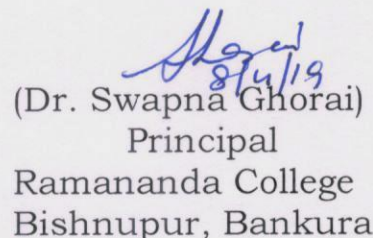 8/4/19
(Dr. Swapna Ghorai)
Principal
Ramananda College
Bishnupur, Bankura